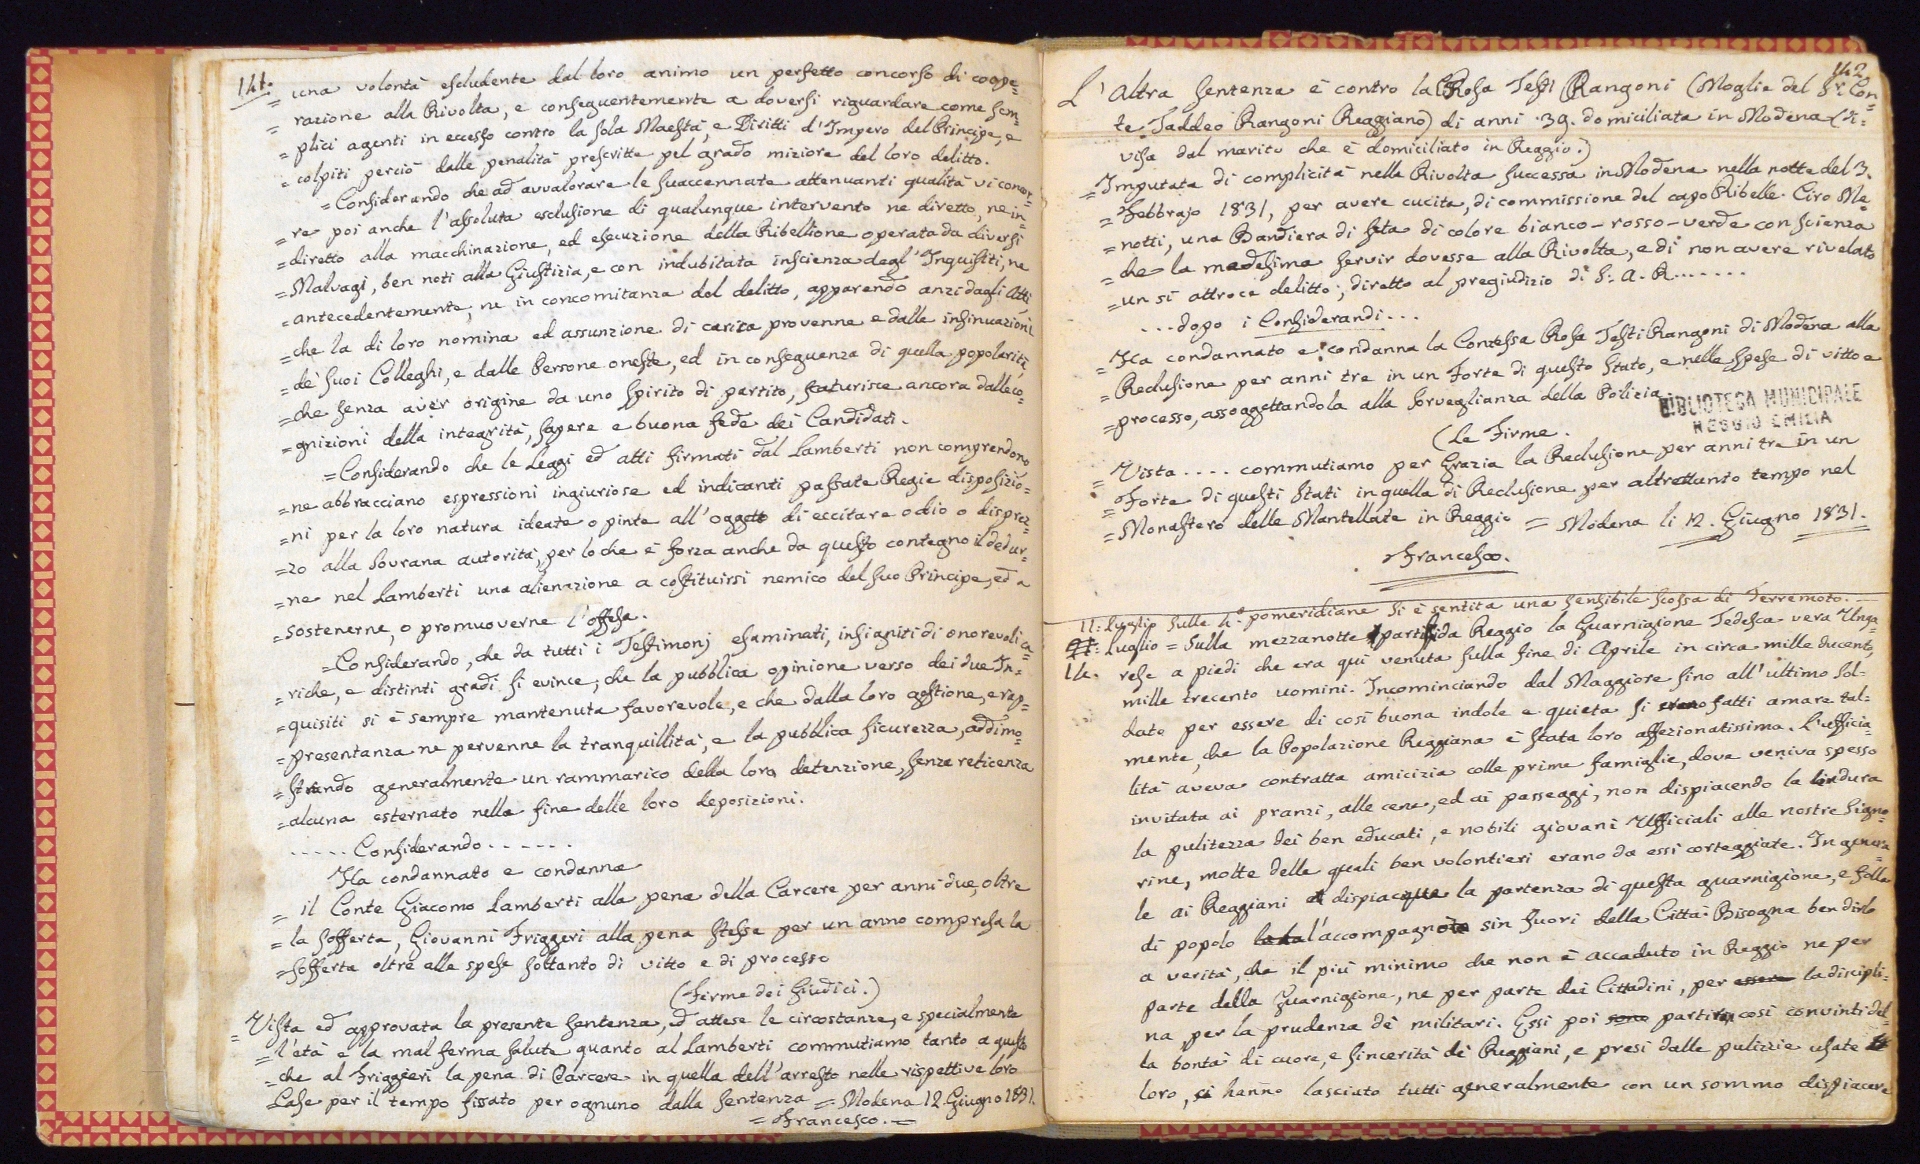 141.
una volontà escludente dal loro animo un perfetto concorso di coope=
= razione alla Rivolta, e conseguentemente a doversi riguardare come sem=
= plici agenti in eccesso contro la sola Maestà, e Diritti d'Impero del Principe, e
= colpiti perciò dalle penalità prescritte pel grado minore del loro delitto.
= Considerando che ad avvalorare le suaccennate attenuanti qualità vi concor=
= re poi anche l'assoluta esclusione di qualunque intervento ne diretto, ne in=
= diretto alla macchinazione, ed esecuzione della Ribellione operata da diversi
= Malvagi, ben noti alla Giustizia, e con indubitata inscienza degl'Inquisiti, ne
= antecedentemente, ne in concomitanza del delitto, apparendo anzi dagli Atti,
= che la di loro nomina ed assunzione di carica provenne e dalle insinuazioni
= de' suoi Colleghi, e dalle Persone oneste, ed in conseguenza di quella popolarità,
= che senza aver origine da uno spirito di partito, scaturisce ancora dalle co=
= gnizioni della integrità, sapere e buona fede dei Candidati.
= Considerando che le Leggi ed atti firmati dal Lamberti non comprendono
= ne abbracciano espressioni ingiuriose ed indicanti passate Regie disposizio=
= ni per la loro natura ideate, o pinte all'oggetto di eccitare odio o disprez=
= zo alla Sovrana autorità, per lo che è forza anche da questo contegno il dedur=
= ne nel Lamberti una alienazione a costituirsi nemico del suo Principe, ed a
= sostenerne, o promuoverne l'offesa.
= Considerando, che da tutti i Testimonj esaminati, insigniti di onorevoli ca=
= riche, e distinti gradi si evince, che la pubblica opinione verso dei due In=
= quisiti si è sempre mantenuta favorevole, e che dalla loro gestione, e rap=
= presentanza ne pervenne la tranquillità, e la pubblica sicurezza, addimo=
= strando generalmente un rammarico della loro detenzione, senza reticenza
= alcuna esternato nella fine delle loro deposizioni.
. . . . . Considerando . . . . . .
Ha condannato e condanna
= il Conte Giacomo Lamberti alla pena della Carcere per anni due, oltre
= la sofferta, Giovanni Friggeri alla pena stessa per un anno compresa la
= sofferta oltre alle spese soltanto di vitto e di processo
(Firme dei Giudici.)
= Vista ed approvata la presente sentenza, ed attese le circostanze, e specialmente
= l'età e la mal ferma salute quanto al Lamberti commutiamo tanto a questo
= che al Friggieri la pena di Carcere in quella dell'arresto nelle rispettive loro
Case per il tempo fissato per ognuno dalla sentenza = Modena 12. Giugno 1831.
= Francesco. =
142
L'Altra sentenza è contro la Rosa Testi Rangoni (Moglie del Sr. Con=
te Taddeo Rangoni Reggiano) di anni 39. domiciliata in Modena (di=
visa dal marito che è domiciliato in Reggio.)
= Imputata di complicità nella Rivolta successa in Modena nella notte del 3.
= Febbrajo 1831, per avere cucita, di commissione del capo Ribelle Ciro Me=
= notti, una Bandiera di seta di colore bianco-rosso-verde con scienza
= che la medesima servir dovesse alla Rivolta, e di non avere rivelato
= un sì attroce delitto, diretto al pregiudizio di S. A. R. . . . . . .
. . . dopo i Considerandi . . .
= Ha condannato e condanna la Contessa Rosa Testi Rangoni di Modena alla
= Reclusione per anni tre in un Forte di questo Stato, e nelle spese di vitto e
= processo, assoggettandola alla sorveglianza della Polizia.
BIBLIOTECA MUNICIPALE
REGGIO EMILIA
(Le Firme.
= Vista . . . . commutiamo per Grazia la Reclusione per anni tre in un
= Forte di questi Stati in quella di Reclusione per altrettanto tempo nel
= Monastero delle Mantellate in Reggio = Modena li 12. Giugno 1831.
Francesco.
11. Luglio sulle 4.e pomeridiane si è sentita una sensibile scossa di Terremoto. —
Luglio = Sulla mezzanotte partì da Reggio la Guarnigione Tedesca vera Unga=
14. rese a piedi che era qui venuta sulla fine di Aprile in circa mille ducento,
mille trecento uomini. Incominciando dal Maggiore fino all'ultimo Sol=
dato per essere di così buona indole e quieta si fatti amare tal=
mente, che la Popolazione Reggiana è stata loro affezionatissima. L'ufficia=
lità aveva contratta amicizia colle prime famiglie, dove veniva spesso
invitata ai pranzi, alle cene, ed ai passeggi, non dispiacendo la lindura
la pulitezza dei ben educati, e nobili giovani Ufficiali alle nostre Signo=
rine, molte delle quali ben volontieri erano da essi corteggiate. In genera=
le ai Reggiani dispiacque la partenza di questa guarnigione, e folla
di popolo l'accompagnò sin fuori della Città. Bisogna ben dirlo
a verità, che il più minimo che non è accaduto in Reggio ne per
parte della Guarnigione, ne per parte dei Cittadini, per la discipli=
na per la prudenza de' militari. Essi poi partirono così convinti del=
la bontà di cuore, e sincerità dei Reggiani, e presi dalle pulizzie usate
loro, si hanno lasciato tutti generalmente con un sommo dispiacere